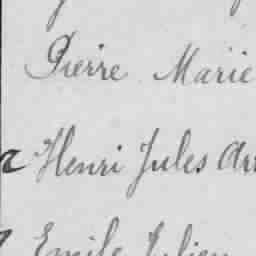 Pierre Marie
Henri Jules
Emile Julien